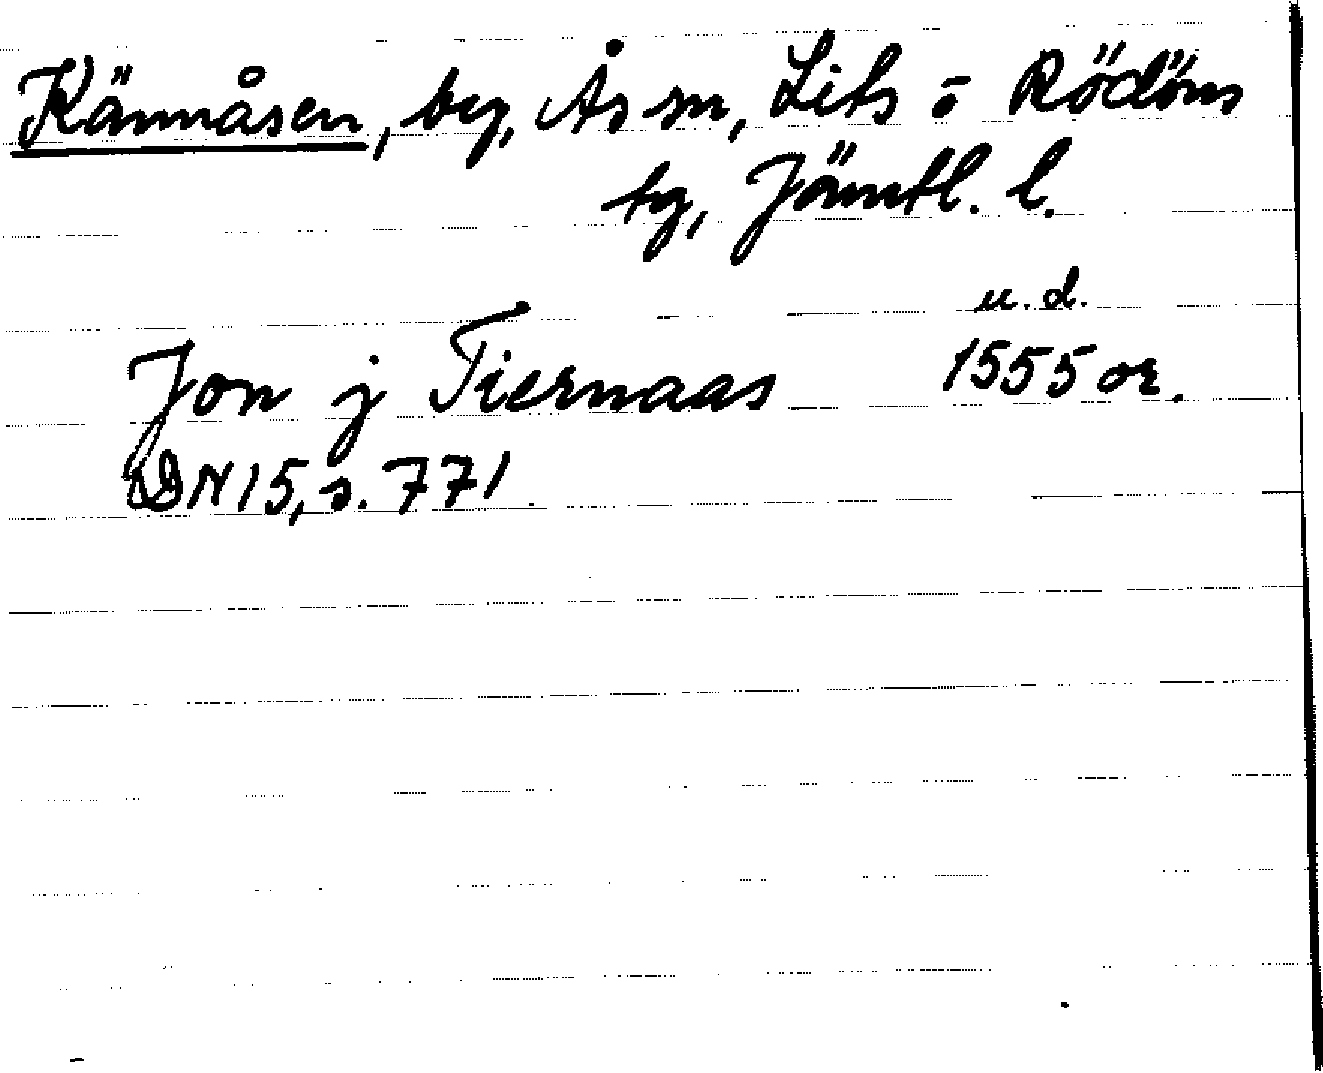 Kännåsen, by, Ås sn, Lits o Rödöns
tg, Jämtl. l.
u. d.
Jon j Tiernaas 1555 or.
DN 15, s. 771